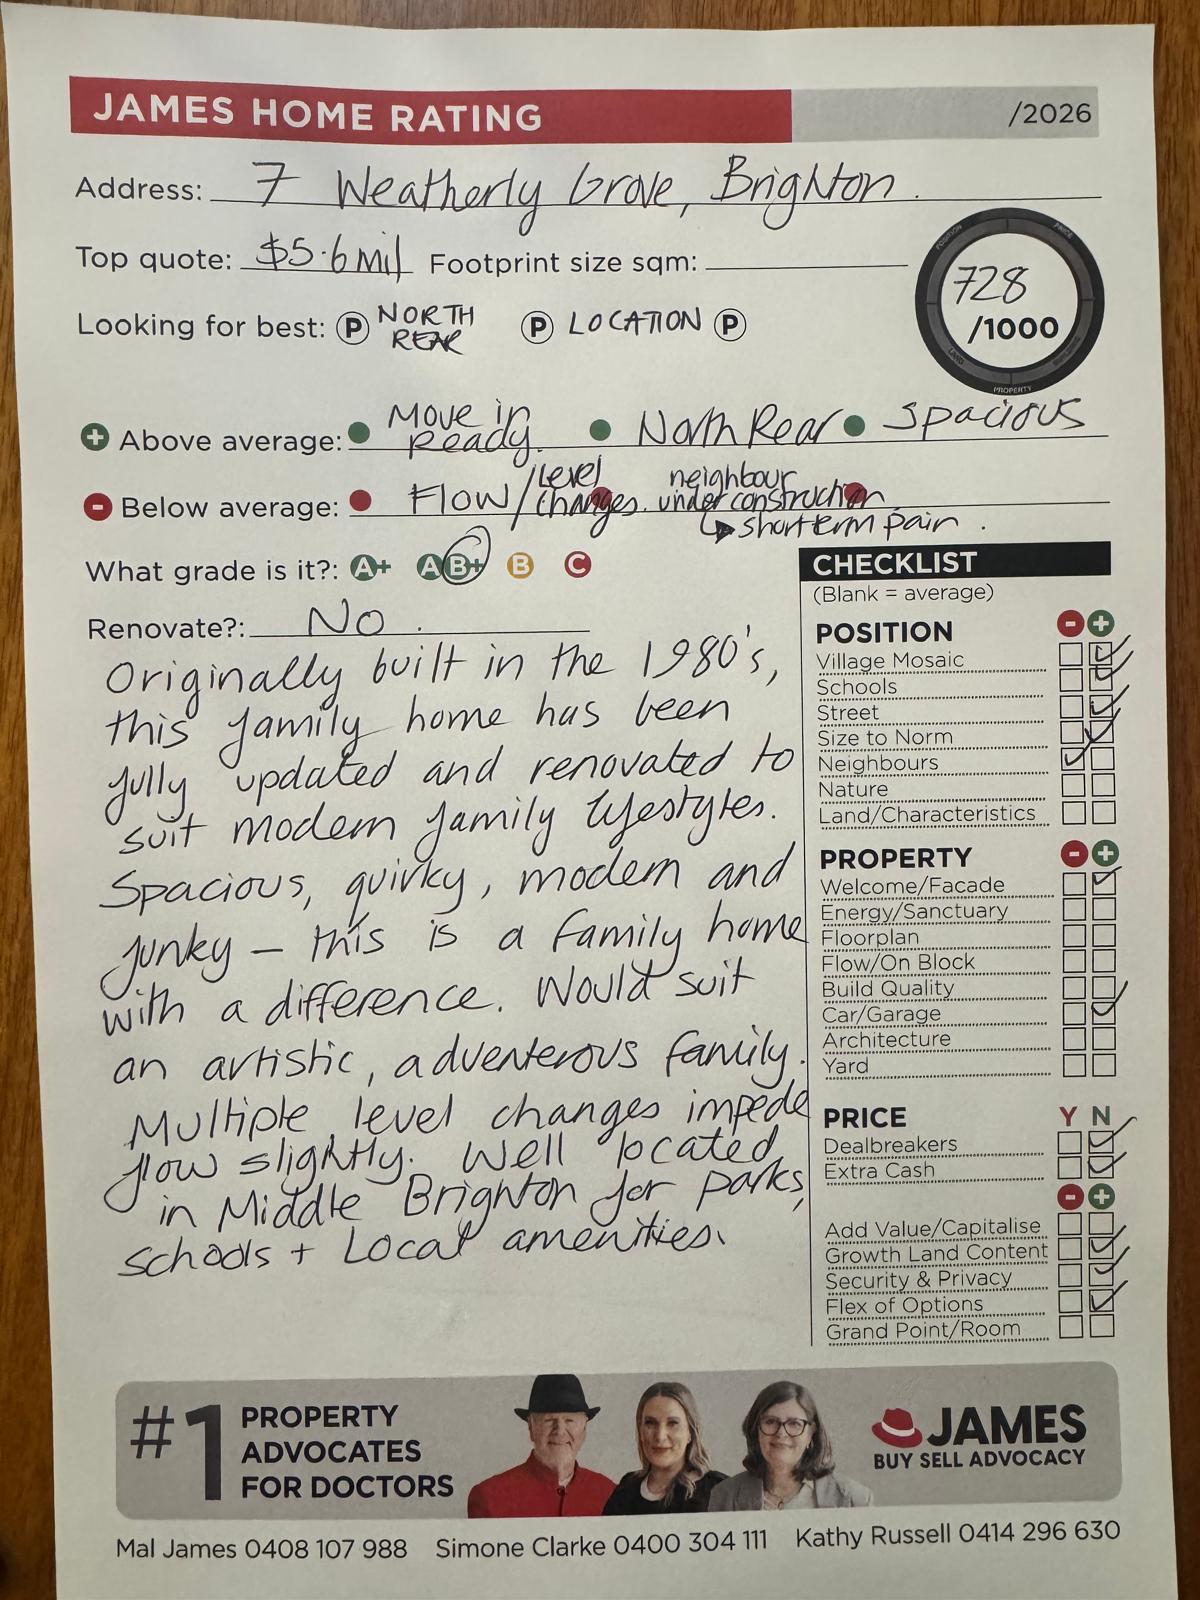 JAMES HOME RATING /2026
Address: 7 Weatherly Grove, Brighton.
Top quote: $5.6mil Footprint size sqm:
728
/1000
POSITION PRICE LAND BUILDING PROPERTY
Looking for best: P NORTH REAR P LOCATION P
+ Above average: Move in Ready. North Rear Spacious
- Below average: Flow/level changes. neighbour under construction
short term pain.
What grade is it?: A+ A B+ B C
Renovate?: No.
Originally built in the 1980's,
this family home has been
fully updated and renovated to
suit modern family lifestyles.
Spacious, quirky, modern and
funky – this is a family home
with a difference. Would suit
an artistic, adventerous family.
Multiple level changes impede
flow slightly. Well located
in Middle Brighton for parks,
schools + Local amenities.
CHECKLIST
(Blank = average)
POSITION - +
Village Mosaic
Schools
Street
Size to Norm
Neighbours
Nature
Land/Characteristics
PROPERTY - +
Welcome/Facade
Energy/Sanctuary
Floorplan
Flow/On Block
Build Quality
Car/Garage
Architecture
Yard
PRICE Y N
Dealbreakers
Extra Cash
- +
Add Value/Capitalise
Growth Land Content
Security & Privacy
Flex of Options
Grand Point/Room
#1 PROPERTY
ADVOCATES
FOR DOCTORS
JAMES
BUY SELL ADVOCACY
Mal James 0408 107 988 Simone Clarke 0400 304 111 Kathy Russell 0414 296 630